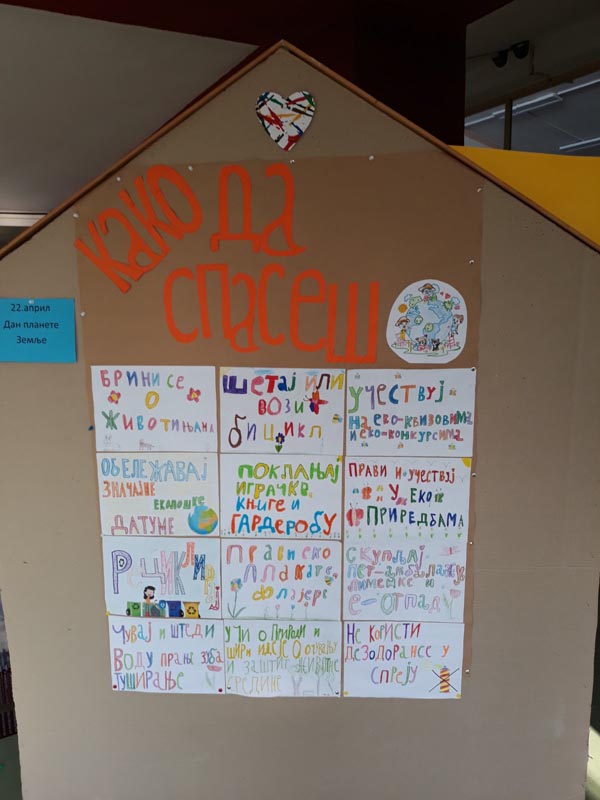 како да
спасеш
22.април
Дан планете
Земље
БРИНИ СЕ
О
ЖИВОТИЊАМА
ШЕТАЈ ИЛИ
ВОЗИ
БИЦИКЛ
УЧЕСТВУЈ
НА ЕКО-КВИЗОВИМА
И ЕКО-КОНКУРСИМА
ОБЕЛЕЖАВАЈ
ЗНАЧАЈНЕ
ЕКОЛОШКЕ
ДАТУМЕ
ПОКЛАЊАЈ
ИГРАЧКЕ,
КЊИГЕ И
ГАРДЕРОБУ
ПРАВИ И УЧЕСТВУЈ
У ЕКО
ПРИРЕДБАМА
РЕЦИКЛИРАЈ
ПРАВИ ЕКО
ПЛАКАТЕ,
ФЛАЈЕРЕ
СКУПЉАЈ
ПЕТ-АМБАЛАЖУ,
ЛИМЕНКЕ И
Е-ОТПАД
ЧУВАЈ И ШТЕДИ
ВОДУ ПРАЊЕ ЗУБА
ТУШИРАЊЕ
УЧИ О ПРИРОДИ И
ШИРИ ИДЕЈЕ О ОЧУВАЊУ
И ЗАШТИТИ ЖИВОТНЕ
СРЕДИНЕ
НЕ КОРИСТИ
ДЕЗОДОРАНСЕ У
СПРЕЈУ